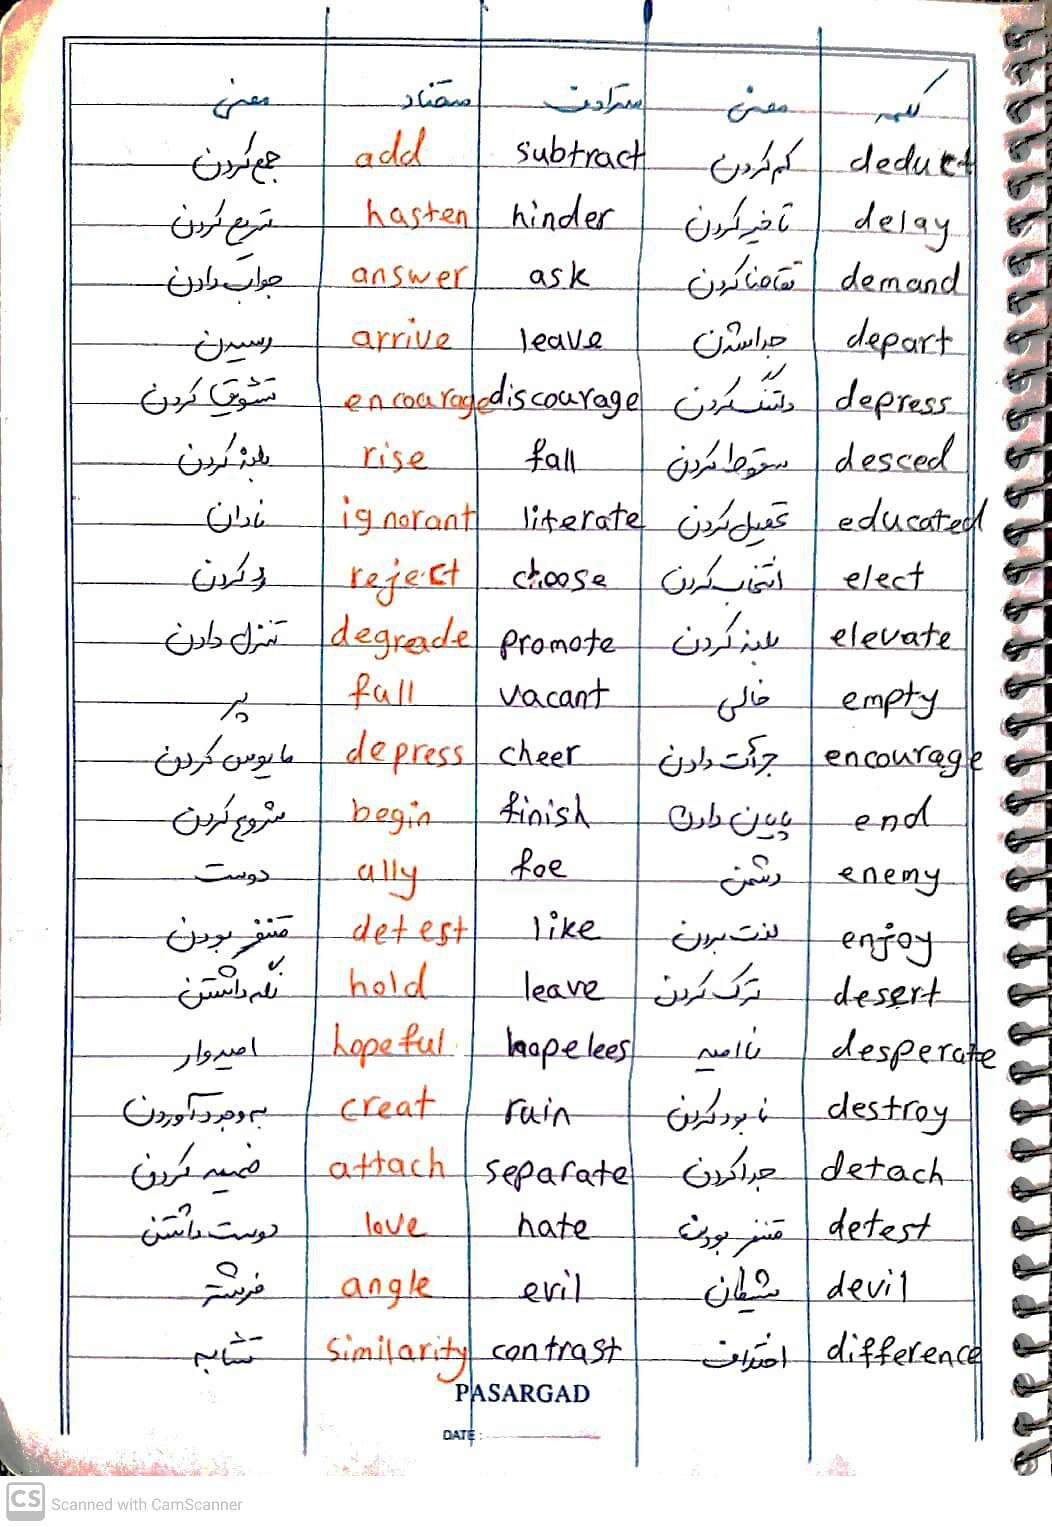 کلمه معنی مترادف متضاد معنی
deduct کم کردن subtract add جمع کردن
delay تاخیر کردن hinder hasten تسریع کردن
demand تقاضا کردن ask answer جواب دادن
depart جدا شدن leave arrive رسیدن
depress دلتنگ کردن discourage encourage تشویق کردن
desced سقوط کردن fall rise بلند کردن
educated تحصیل کردن literate ignorant نادان
elect انتخاب کردن choose reject رد کردن
elevate بلند کردن promote degreade تنزل دادن
empty خالی vacant full پر
encourage جرآت دادن cheer depress مایوس کردن
end پایان دادن finish begin شروع کردن
enemy دشمن foe ally دوست
enjoy لذت بردن like detest متنفر بودن
desert ترک کردن leave hold نگه داشتن
desperate نا امید hopelees hopeful امیدوار
destroy نابود کردن ruin creat به وجود آوردن
detach جدا کردن separate attach ضمیمه کردن
detest متنفر بودن hate love دوست داشتن
devil شیطان evil angle فرشته
difference اختلاف contrast similarity تشابه
PASARGAD
DATE :
CS Scanned with CamScanner